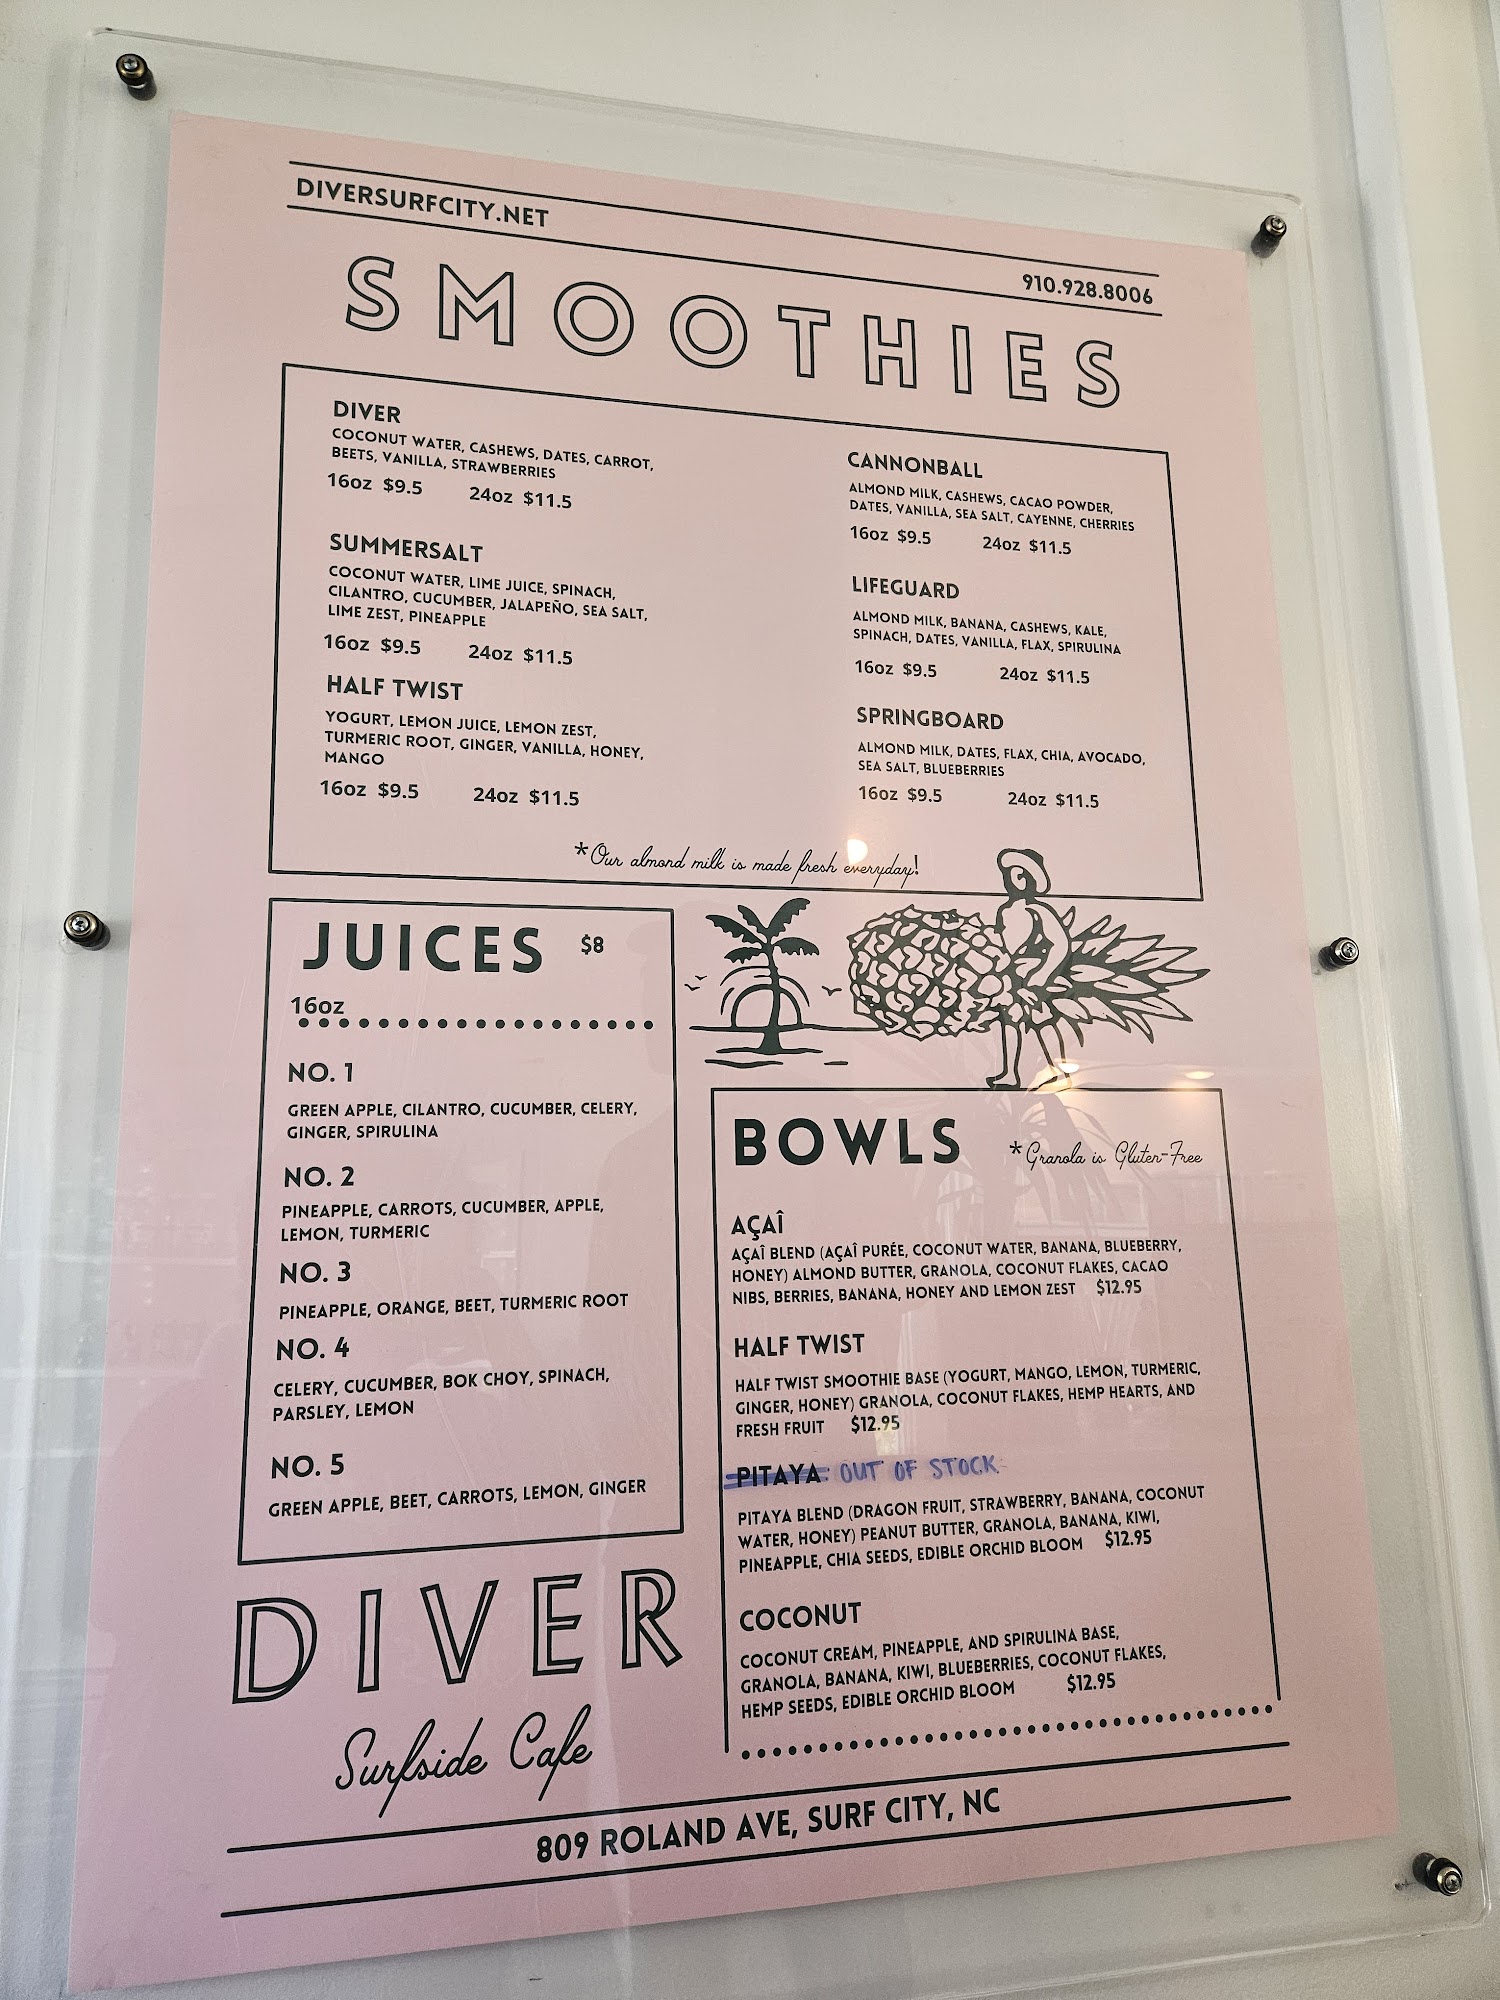 DIVERSURFCITY.NET
910.928.8006
SMOOTHIES
DIVER
COCONUT WATER, CASHEWS, DATES, CARROT,
BEETS, VANILLA, STRAWBERRIES
16oz $9.5 24oz $11.5
SUMMERSALT
COCONUT WATER, LIME JUICE, SPINACH,
CILANTRO, CUCUMBER, JALAPEÑO, SEA SALT,
LIME ZEST, PINEAPPLE
16oz $9.5 24oz $11.5
HALF TWIST
YOGURT, LEMON JUICE, LEMON ZEST,
TURMERIC ROOT, GINGER, VANILLA, HONEY,
MANGO
16oz $9.5 24oz $11.5
CANNONBALL
ALMOND MILK, CASHEWS, CACAO POWDER,
DATES, VANILLA, SEA SALT, CAYENNE, CHERRIES
16oz $9.5 24oz $11.5
LIFEGUARD
ALMOND MILK, BANANA, CASHEWS, KALE,
SPINACH, DATES, VANILLA, FLAX, SPIRULINA
16oz $9.5 24oz $11.5
SPRINGBOARD
ALMOND MILK, DATES, FLAX, CHIA, AVOCADO,
SEA SALT, BLUEBERRIES
16oz $9.5 24oz $11.5
*Our almond milk is made fresh everyday!
JUICES $8
16oz
NO. 1
GREEN APPLE, CILANTRO, CUCUMBER, CELERY,
GINGER, SPIRULINA
NO. 2
PINEAPPLE, CARROTS, CUCUMBER, APPLE,
LEMON, TURMERIC
NO. 3
PINEAPPLE, ORANGE, BEET, TURMERIC ROOT
NO. 4
CELERY, CUCUMBER, BOK CHOY, SPINACH,
PARSLEY, LEMON
NO. 5
GREEN APPLE, BEET, CARROTS, LEMON, GINGER
BOWLS *Granola is Gluten-Free
AÇAÎ
AÇAÎ BLEND (AÇAÎ PURÉE, COCONUT WATER, BANANA, BLUEBERRY,
HONEY) ALMOND BUTTER, GRANOLA, COCONUT FLAKES, CACAO
NIBS, BERRIES, BANANA, HONEY AND LEMON ZEST $12.95
HALF TWIST
HALF TWIST SMOOTHIE BASE (YOGURT, MANGO, LEMON, TURMERIC,
GINGER, HONEY) GRANOLA, COCONUT FLAKES, HEMP HEARTS, AND
FRESH FRUIT $12.95
PITAYA: OUT OF STOCK
PITAYA BLEND (DRAGON FRUIT, STRAWBERRY, BANANA, COCONUT
WATER, HONEY) PEANUT BUTTER, GRANOLA, BANANA, KIWI,
PINEAPPLE, CHIA SEEDS, EDIBLE ORCHID BLOOM $12.95
COCONUT
COCONUT CREAM, PINEAPPLE, AND SPIRULINA BASE,
GRANOLA, BANANA, KIWI, BLUEBERRIES, COCONUT FLAKES,
HEMP SEEDS, EDIBLE ORCHID BLOOM $12.95
DIVER
Surfside Cafe
809 ROLAND AVE, SURF CITY, NC